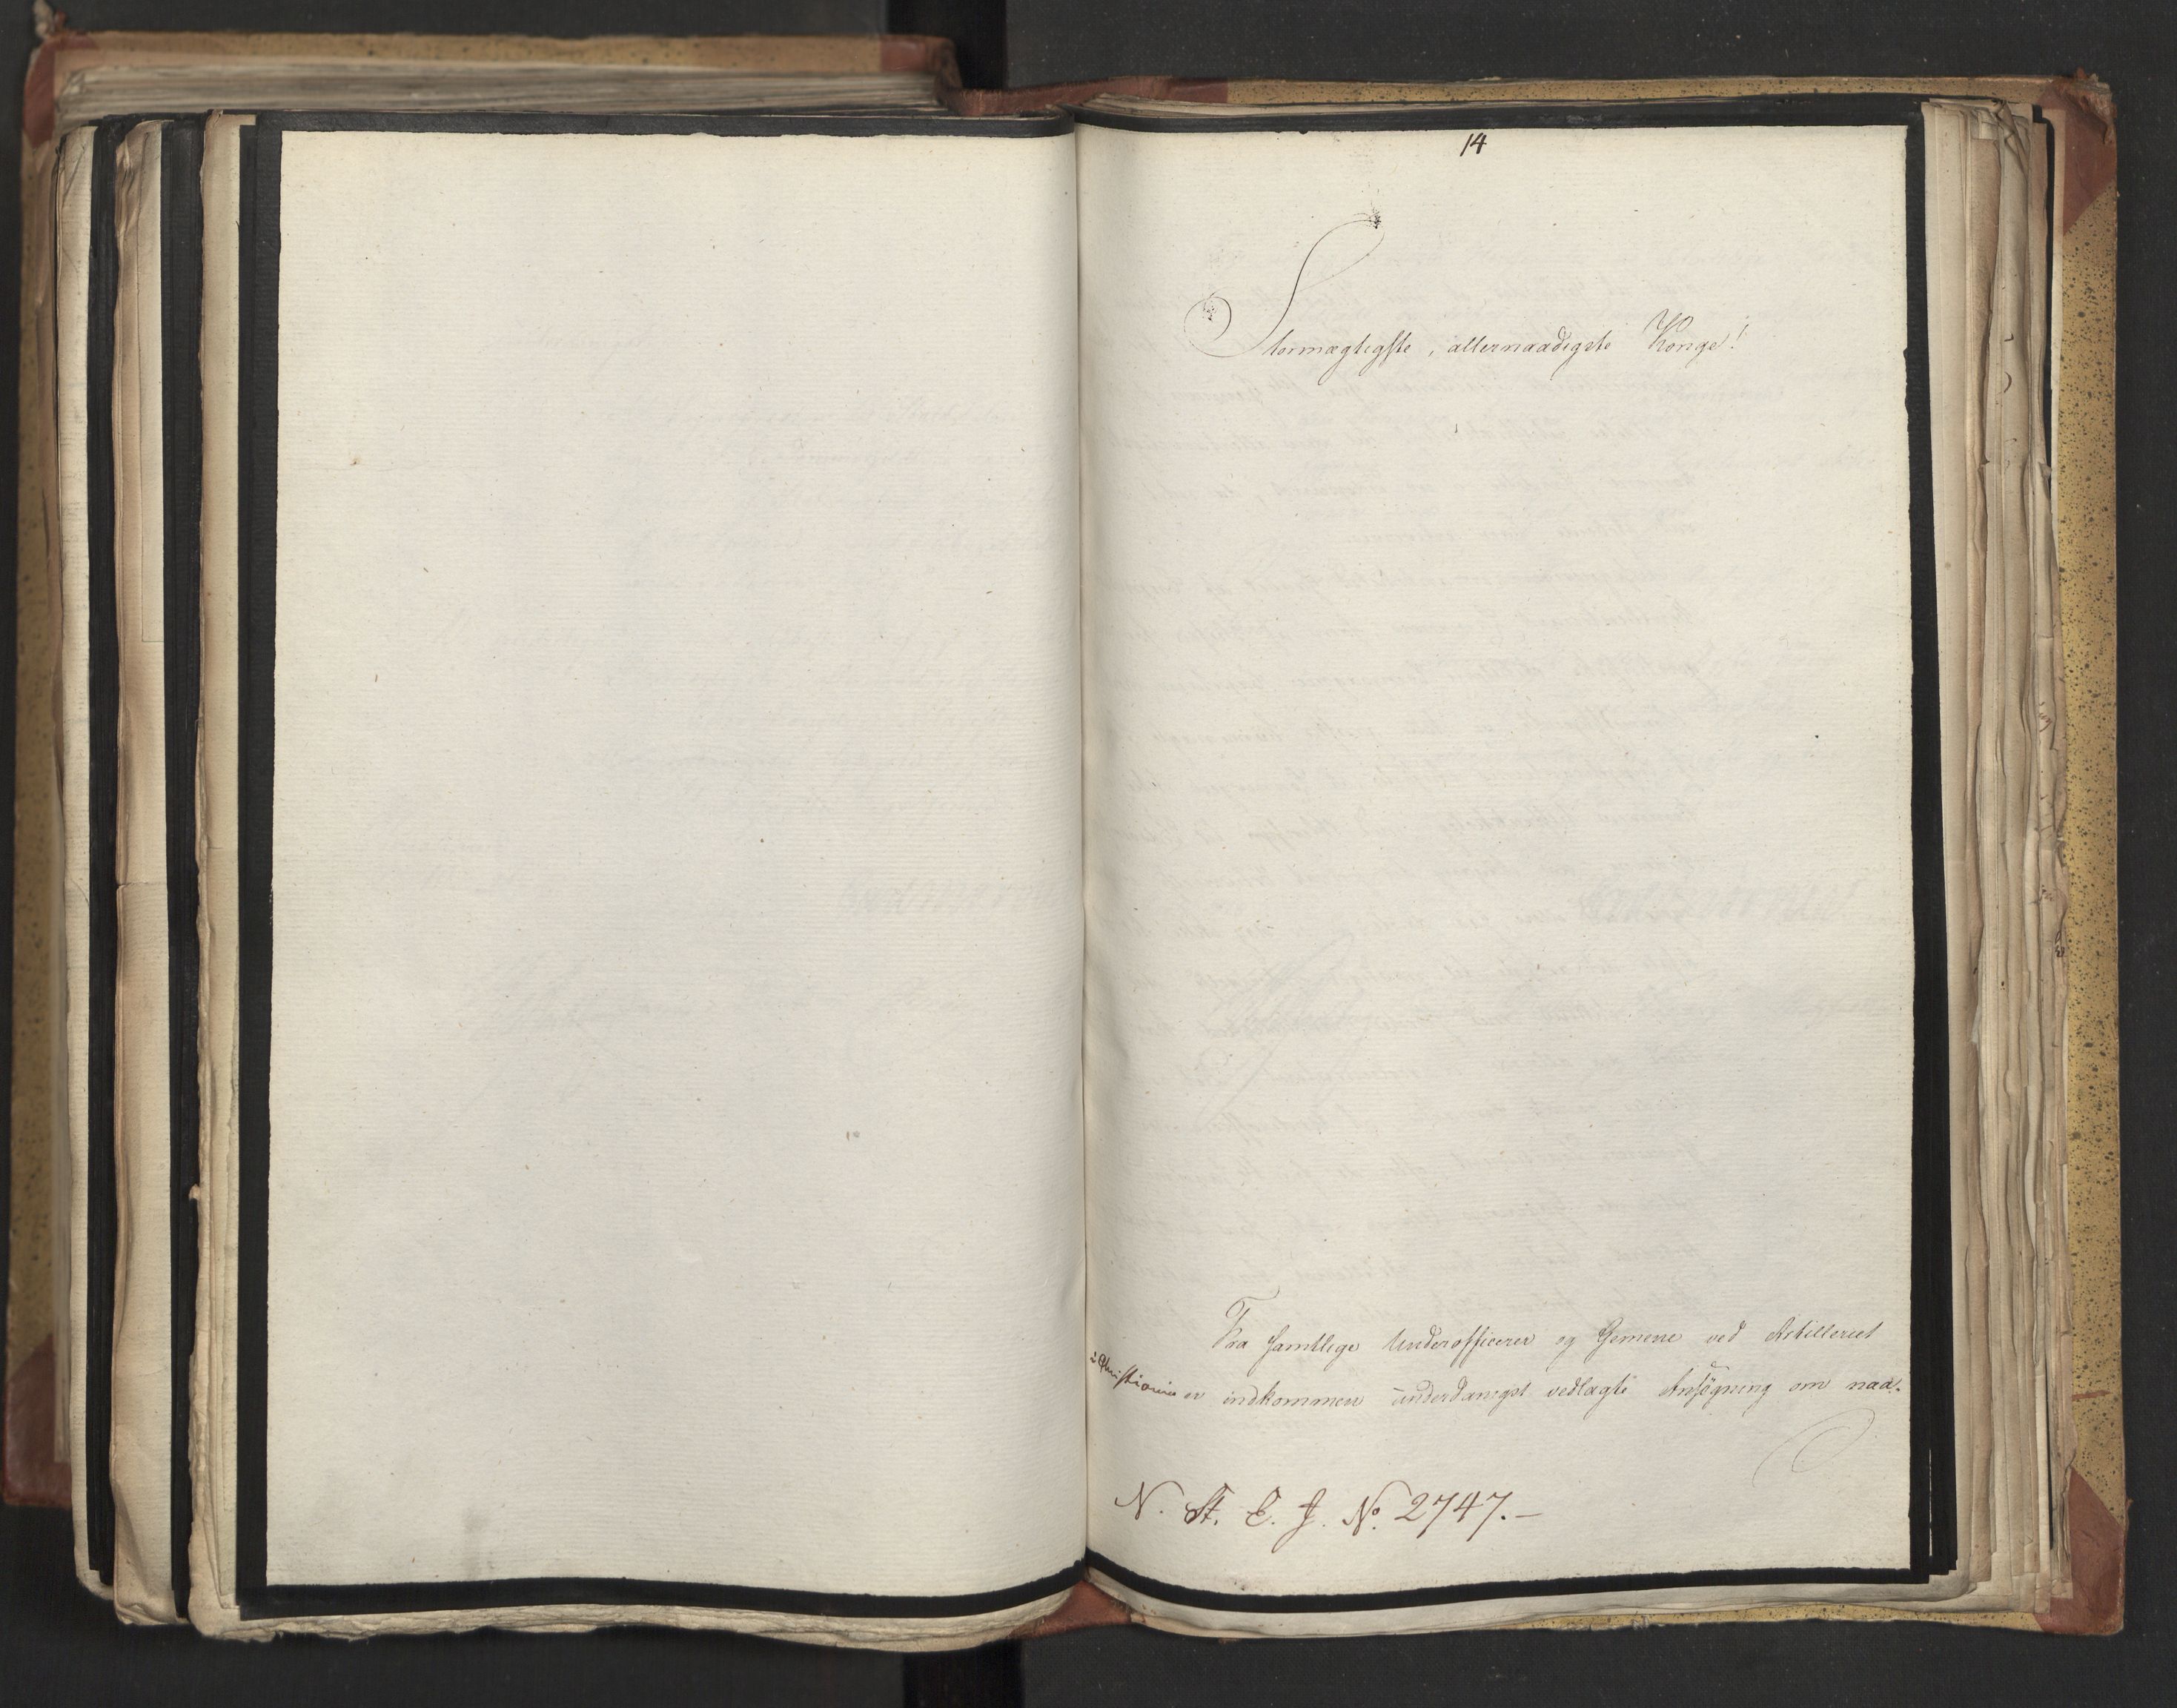 14
Stormægtigste, allernaadigste Konge!
Fra samtlige Underofficerer og Gemene ved Artilleriet
i Christiania er indkommen underdanigst vedlagte Ansøgning om naa-
N. St. C. J. No. 2747.-